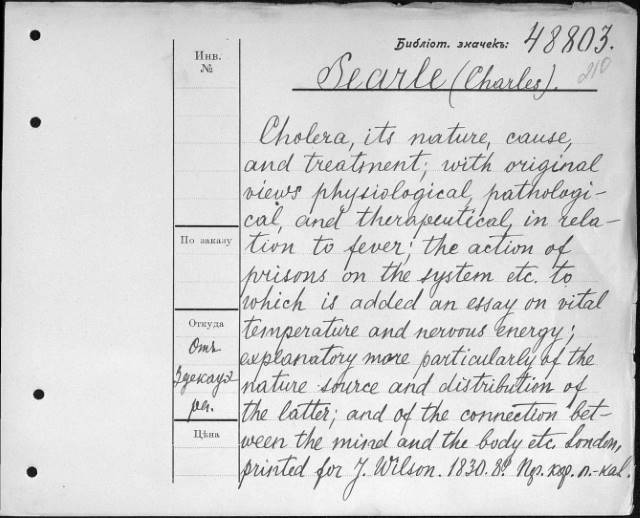 Библіот. значекъ: 48803.
210
Инв.
№
Searle (Charles).
Cholera, its nature, cause,
and treatment; with original
views physiological, pathologi-
cal, and therapeutical, in rela-
tion to fever; the action of
prisons on the system etc. to
which is added an essay on vital
temperature and nervous energy;
explanatory more particularly of the
nature source and distribution of
the latter; and of the connection bet-
ween the mind and the body etc. London,
printed for J. Wilson. 1830. 8º Пр. кор. п.-кал.
По заказу
Откуда
Отъ
Здекауэ
ра.
Цѣна